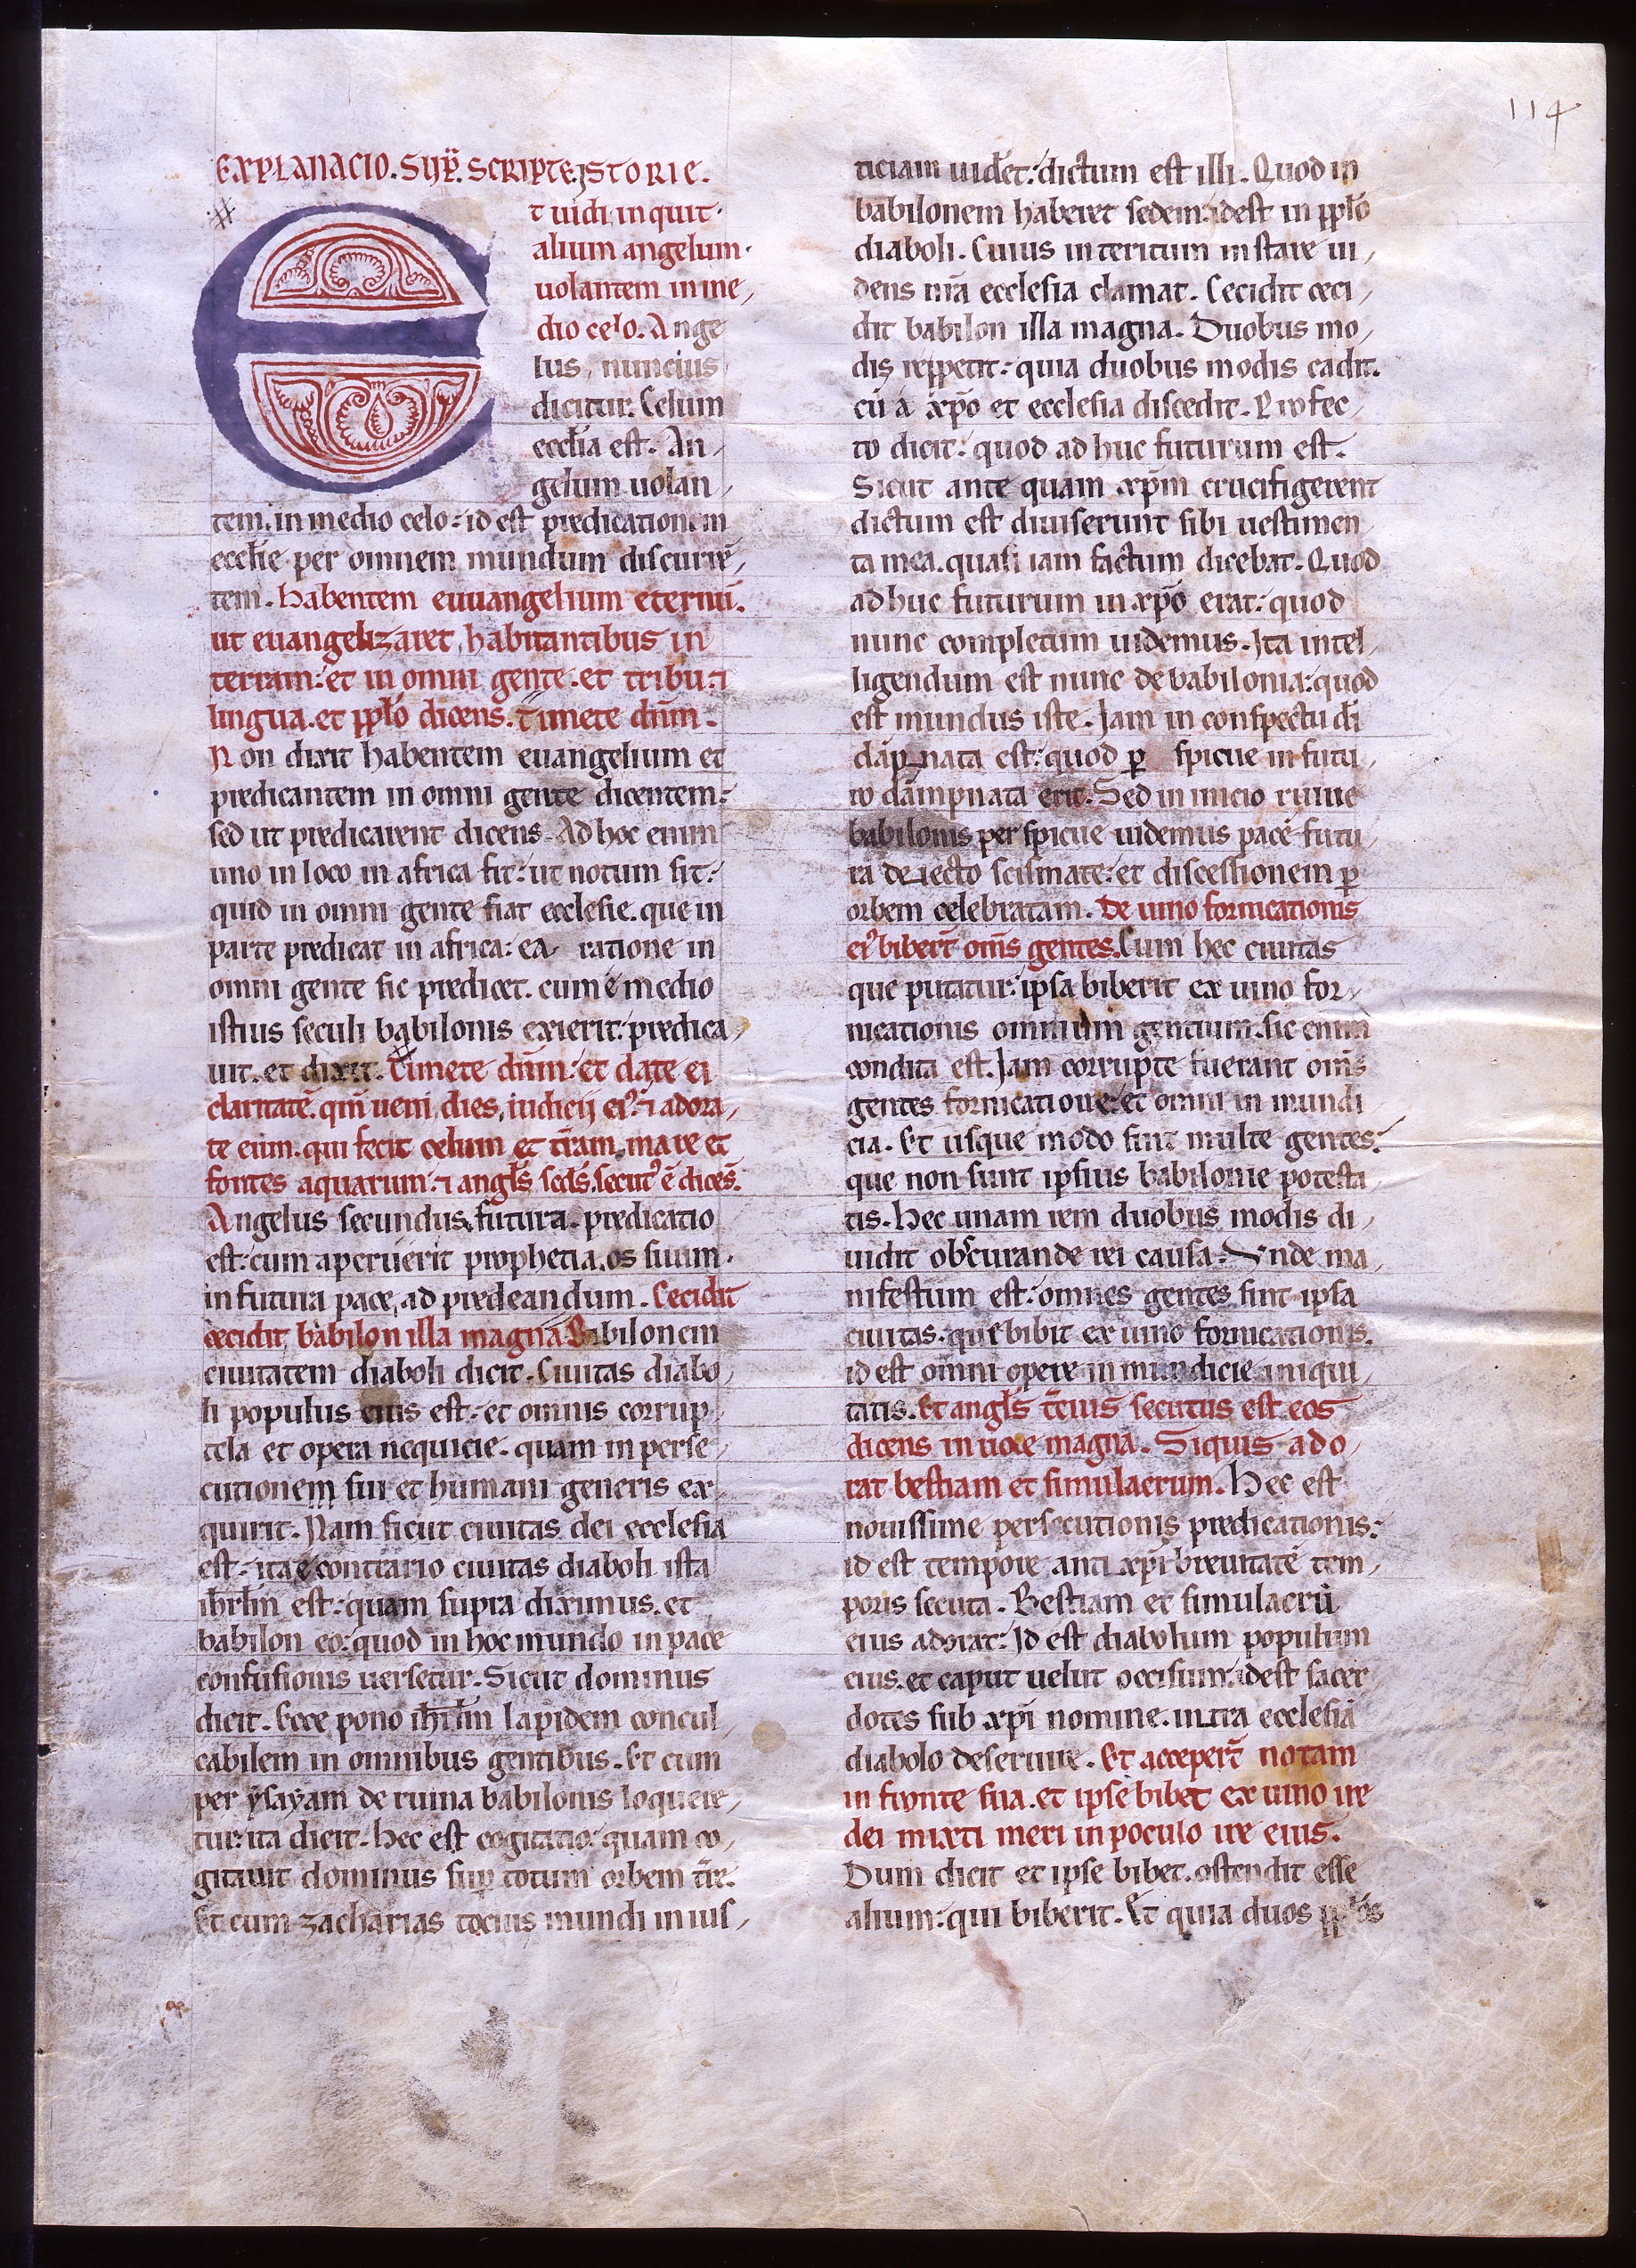 114
EXPLANACIO. SUP̄. SCRIPTE. ISTORIE.
Et uidi, inquit.
alium angelum.
uolantem in me,
dio celo. Ange
lus, nuncius
dicitur. Celum
eccl̄ia est. An,
gelum uolan,
tem. in medio celo: id est predicationem
eccl̄ie per omnem mundum discurrē,
tem. habentem euuangelium eternū.
ut euangelizaret, habitantibus in
terram: et in omni gente. et tribu. ⁊
lingua. et pp̄lo dicens. Timete dn̄m.
Non dixit habentem euangelium et
predicantem in omni gente dicentem:
sed ut predicarent dicens. Ad hoc enim
uno in loco in africa fit: ut notum sit:
quid in omni gente fiat ecclesie. que in
parte predicat in africa: ea ratione in
omni gente sic predicet. cum e medio
istius seculi babilonis exierit: predica,
uit. et dixit. Timete dn̄m: et date ei
claritatē. qm̄ ueni dies, iudicij eiꝰ. ⁊ adora,
te eum. qui fecit celum et tr̄am, mare et
fontes aquarum. ⁊ angl̄s scds̄. secutꝰ ē dicēs.
Angelus secundus, futura. predicatio
est: cum aperuerit prophetia, os suum.
in futura pace, ad predeandum. Cecidit
cecidit, babilon illa magna. Babilonem
ciuitatem diaboli dicit. Ciuitas diabo,
li populus eius est: et omnis corrup,
tela et opera nequicie. quam in perse,
cutionem sui et humani generis ex,
quirit. Nam sicut ciuitas dei ecclesia
est: ita e contrario ciuitas diaboli ista
ihrl̄m est: quam supra diximus. et
babilon eo: quod in hoc mundo in pace
confusionis uersetur. Sicut dominus
dicit. Ecce pono ihrl̄m lapidem concul,
cabilem in omnibus gentibus. Et cum
per ysayam de ruina babilonis loquere,
tur: ita dicit. Hec est cogitatio: quam co,
gitauit dominus sup̄ totum orbem tr̄e.
Et cum zacharias tocius mundi inius,
ticiam uider̄et: dictum est illi. Quod in
babilonem haberet sedem: idest in pp̄lo
diaboli. Cuius interitum instare ui,
dens nr̄a ecclesia clamat. Cecidit ceci,
dit babilon illa magna. Duobus mo,
dis reppetit: quia duobus modis cadit.
cū a xp̄o et ecclesia discedit. Profec,
to dicit: quod ad huc futurum est.
Sicut ante quam xp̄m crucifigerent
dictum est diuiserunt sibi uestimen,
ta mea. quasi iam factum dicebat. Quod
ad huc futurum in xp̄o erat: quod
nunc completum uidemus. Ita intel,
ligendum est nunc de babilonia: quod
est mundus iste. Iam in conspectu dī
dāpnata est: quod ꝑ spicue in futu,
ro dampnata erit. Sed in inicio ruine
babilonis perspicue uidemus pacē futu,
ra deiecto scismate: et discessionem ꝑ
orbem celebratam. De uino fornicationis
eiꝰ bibert̄ om̄s gentes. Cum hec ciuitas
que putatur: ipsa biberit ex uino for,
nicationis omnium gentium. sic enim
condita est. Iam corrupte fuerant om̄s
gentes fornicatione: et omni in mundi,
cia. Et usque modo sunt multe gentes:
que non sunt ipsius babilonie potesta,
tis. Hec unam rem duobus modis di,
uidit obscurande rei causa. Unde ma,
nifestum est: omnes gentes sint ipsa
ciuitas. que bibit ex uino fornicationis.
id est omni opere inmundicie iniqui,
tatis. Et angl̄s t̄cius secutus est eos
dicens in uoce magna. Siquis ado,
rat bestiam et simulacrum. Hec est
nouissime persecutionis predicationis:
id est tempore anti xp̄i breuitatē tem,
poris secuta. Bestiam et simulacrū
eius adorat: Id est diabolum populum
eius. et caput uelut occisum: idest sacer
dotes sub xp̄i nomine. in ita ecclesiā
diabolo deseruire. Et accepert̄ notam
in fronte sua. et ipse bibet ex uino ire
dei mixti meri in poculo ire eius.
Dum dicit et ipse bibet. ostendit esse
alium: qui biberit. Et quia duos pp̄los